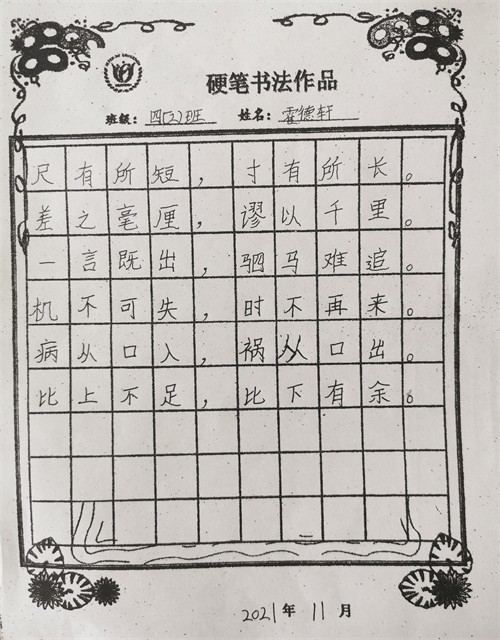 硬笔书法作品
班级：四(2)班 姓名：霍德轩
尺有所短，寸有所长。
差之毫厘，谬以千里。
一言既出，驷马难追。
机不可失，时不再来。
病从口入，祸从口出。
比上不足，比下有余。
2021年11月